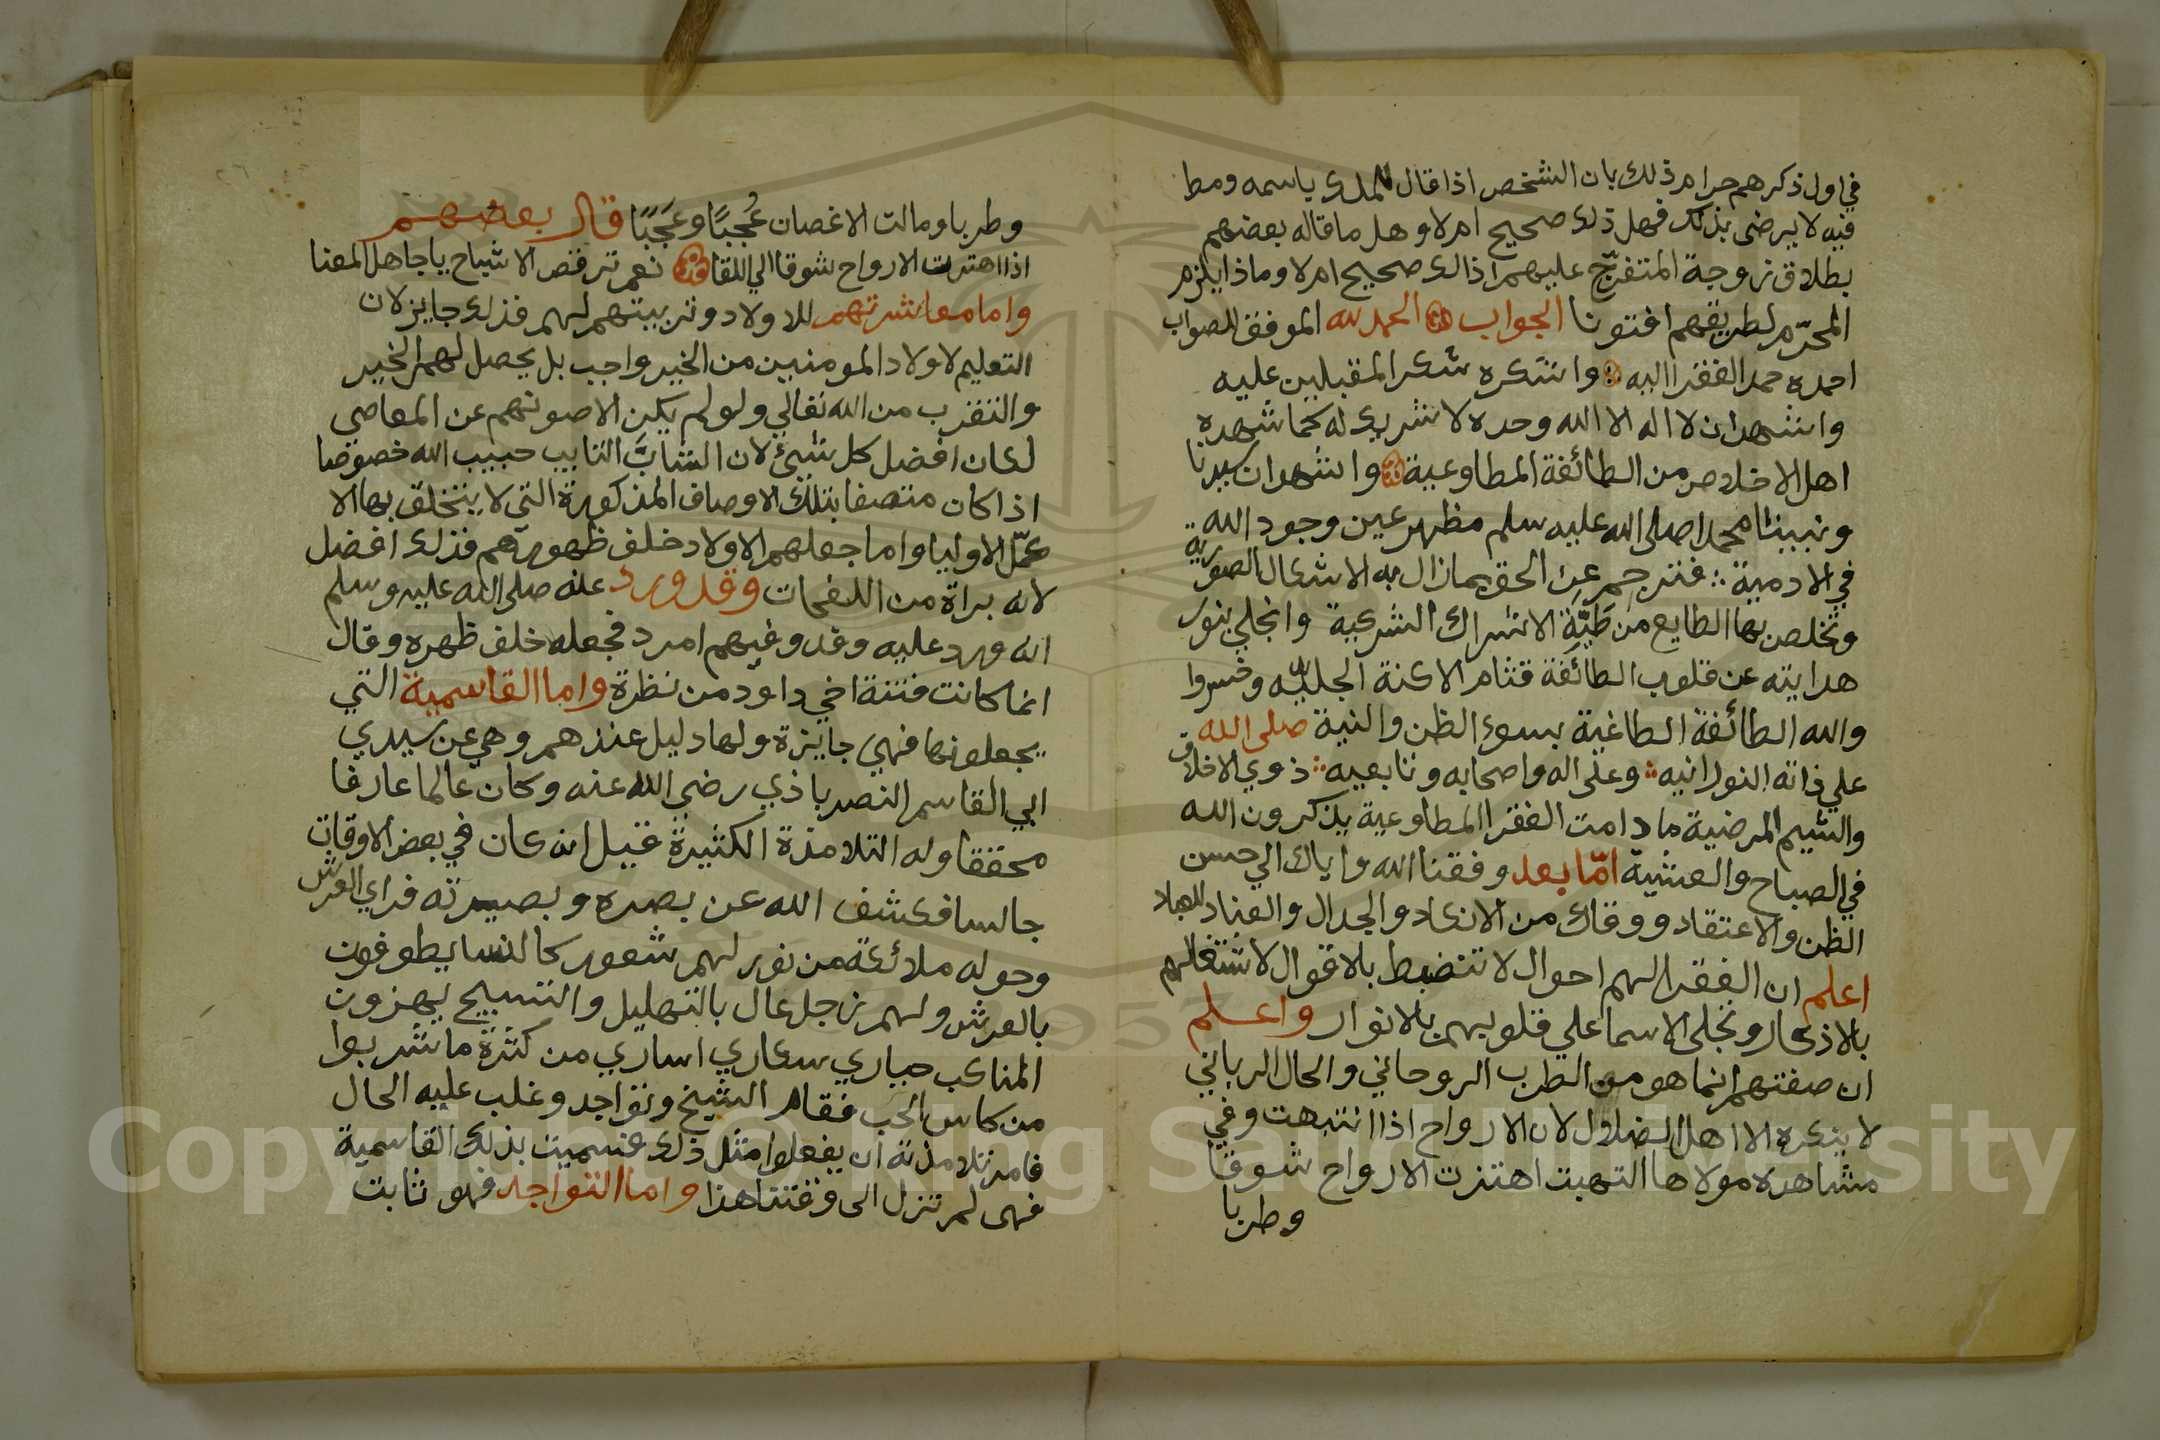 في اول ذكرهم حرام ذلك بان الشخص اذا قال للملك ياسمه ومط
فيه لا يرضى بذلك فهل ذلك صحيح ام لا وهل ما قاله بعضهم
بطلاق زوجة المتفرّج عليهم اذالك صحيح ام لا وماذا يلزم
المحرّم لطريقهم افتونا الجواب الحمد لله الموفق للصواب
احمده حمد الفقرا اليه واشكره شكر المقبلين عليه
واشهد ان لا اله الا الله وحده لا شريك له كما شهده
اهل الاخلاص من الطائفة المطاوعية واشهد ان سيدنا
ونبينا محمدا صلى الله عليه سلم مظهر عين وجود الله
في الادمية فترجم عن الحق بما زال به الاشكال الصورية
وتخلص بها الطايع من طَيِّة الاشراك الشركية وانجلي بنور
هدايته عن قلوب الطائفة قتام الاكنة الجلبيّه وخسروا
والله الطائفة الطاغية بسوء الظن والنية صلى الله
علي ذاته النورانيه وعلى اله واصحابه وتابعيه ذوي الاخلاق
والشيم المرضية ما دامت الفقرا المطاوعية يذكرون الله
في الصباح والعشية امّا بعد وفقنا الله واياك الي حسن
الظن والاعتقاد ووقاك من الانكاد والجدال والعناد للعباد
اعلم ان الفقرا لهم احوال لا تنضبط بالاقوال لاشتغالهم
بالاذكار وتجلى الاسما علي قلوبهم بالانوار واعلم
ان صفتهم انما هو من الطرب الروحاني والحال الرباني
لا ينكره الا اهل الضلال لان الارواح اذا انتبهت وفي
مشاهدة مولاها التهبت اهتزت الارواح شوقا
وطربا
وطربا ومالت الاغصان عُجبًا وعَجَبًا قال بعضهم
اذا اهتزت الارواح شوقا الي اللقا نعم ترقص الاشباح يا جاهل المعنا
واما معاشرتهم للاولاد وتربيتهم لهم فذلك جايز لان
التعليم لاولاد المومنين من الخير واجب بل يحصل لهم الخير
والتقرب من الله تعالي ولو لم يكن الا صونهم عن المعاصى
لكان افضل كل شيئ لان الشابَّ التايب حبيب الله خصوصا
اذا كان متصفا بتلك الاوصاف المذكورة التي لا يتخلق بها الا
كمّل الاوليا واما جعلهم الاولاد خلف ظهورهم فذلك افضل
لانه براة من اللفحات وقد ورد عنه صلى الله عليه وسلم
انه ورد عليه وفد وفيهم امرد فجعله خلف ظهره وقال
انما كانت فتنة اخي داود من نظرة واما القاسمية التي
يجعلونها فهي جايزة ولها دليل عندهم وهي عن سيدي
ابي القاسم النصر باذي رضي الله عنه وكان عالما عارفا
محققا وله التلامذة الكثيرة قيل انه كان في بعض الاوقات
جالسا فكشف الله عن بصره وبصيرته فراي العرش
وحوله ملائكة من نور لهم شعور كالنسا يطوفون
بالعرش ولهم زجل عال بالتهليل والتسبيح يهزون
المناكب حياري سكاري اساري من كثرة ما شربوا
من كاس الحب فقام الشيخ وتواجد وغلب عليه الحال
فامر تلامذته ان يفعلوا مثل ذلك فسميت بذلك القاسمية
فهى لم تزل الى وقتنا هذا واما التواجد فهو ثابت